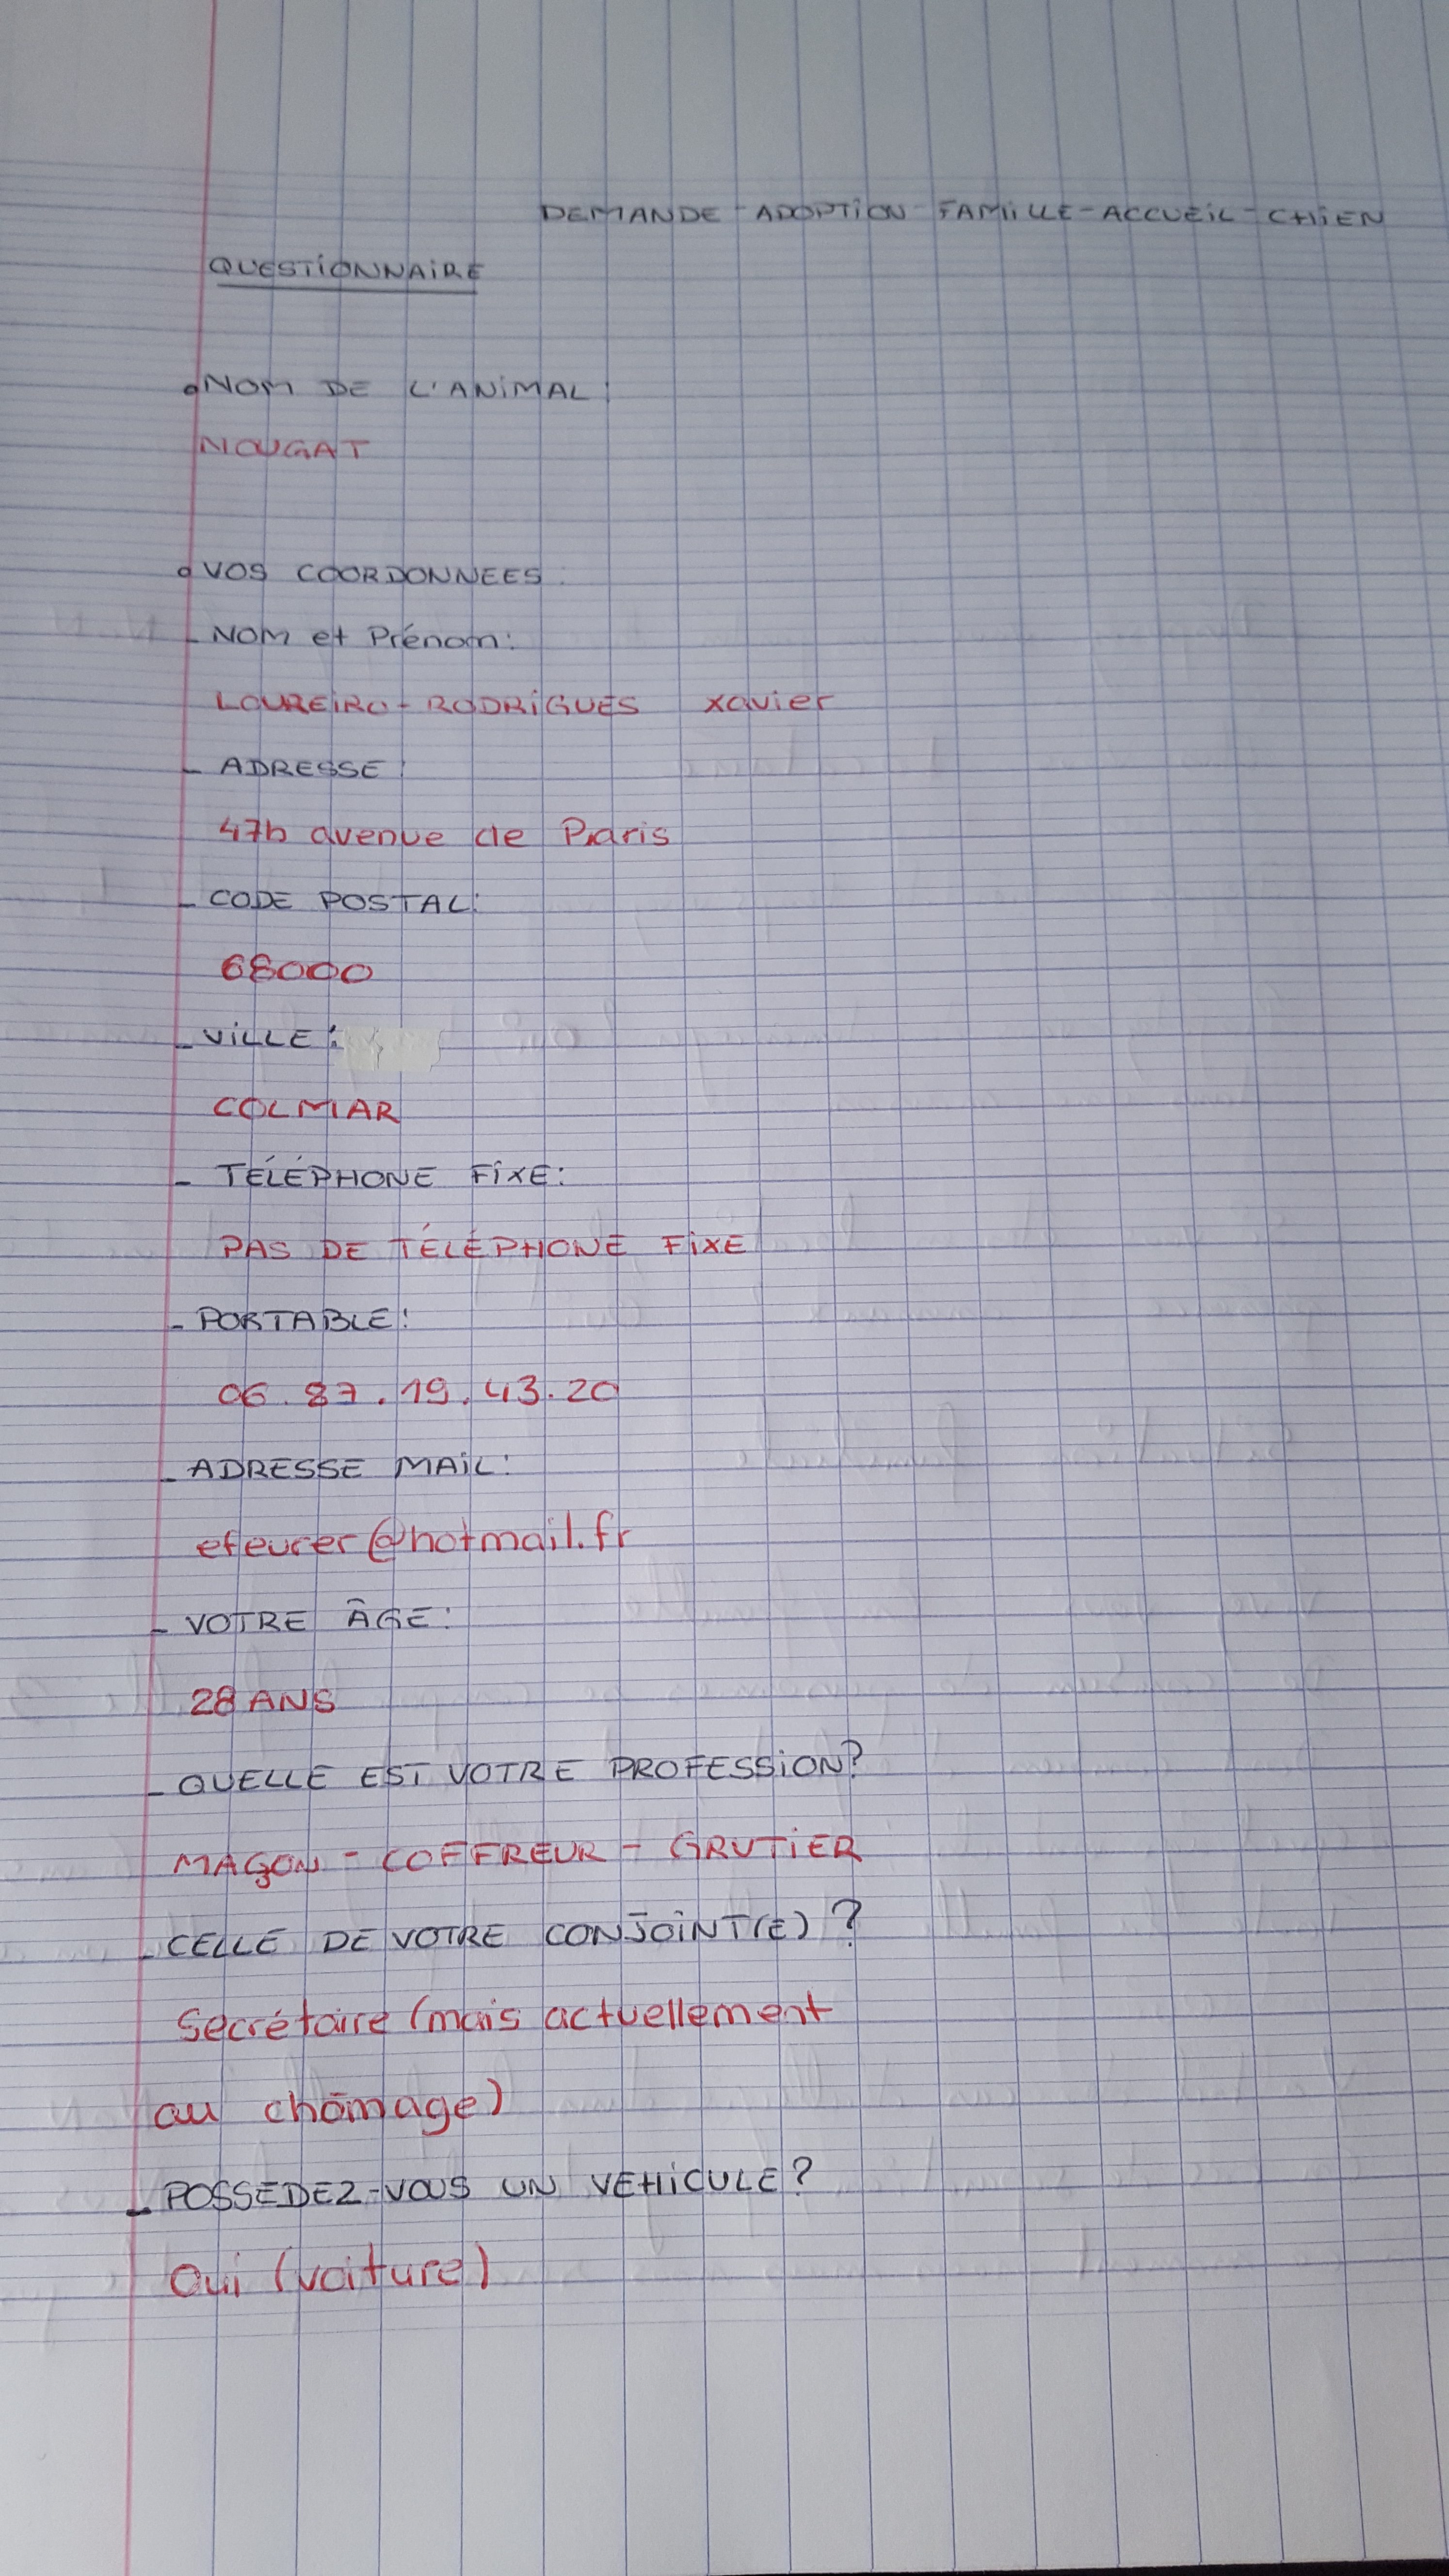 DEMANDE-ADOPTION-FAMiLLE-ACCUEiL-CHiEN
QUESTiONNAiRE
NOM DE L'ANiMAL
NOUGAT
VOS COORDONNEES:
- NOM et Prénom:
LOUREiRO-RODRiGUES xavier
- ADRESSE:
47b avenue de Paris
- CODE POSTAL:
68000
- ViLLE:
COLMAR
- TÉLÉPHONE FiXE:
PAS DE TÉLÉPHONE FiXE
- PORTABLE:
06.87.19.43.20
- ADRESSE MAiL:
@hotmail.fr
- VOTRE ÂGE:
28 ANS
- QUELLE EST VOTRE PROFESSiON?
MAÇON - COFFREUR - GRUTiER
- CELLE DE VOTRE CONJOiNT(E)?
Secrétaire (mais actuellement
au chômage)
- POSSEDEZ-VOUS UN VEHiCULE?
Oui (voiture)